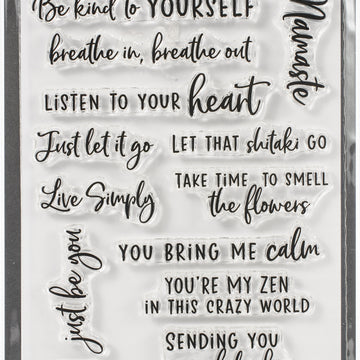 Be kind to YOURSELF
Namaste
breathe in, breathe out
LISTEN TO YOUR heart
Just let it go
LET THAT shitaki GO
Live Simply
TAKE TIME TO SMELL
the flowers
just be you
YOU BRING ME calm
YOU'RE MY ZEN
IN THIS CRAZY WORLD
SENDING YOU